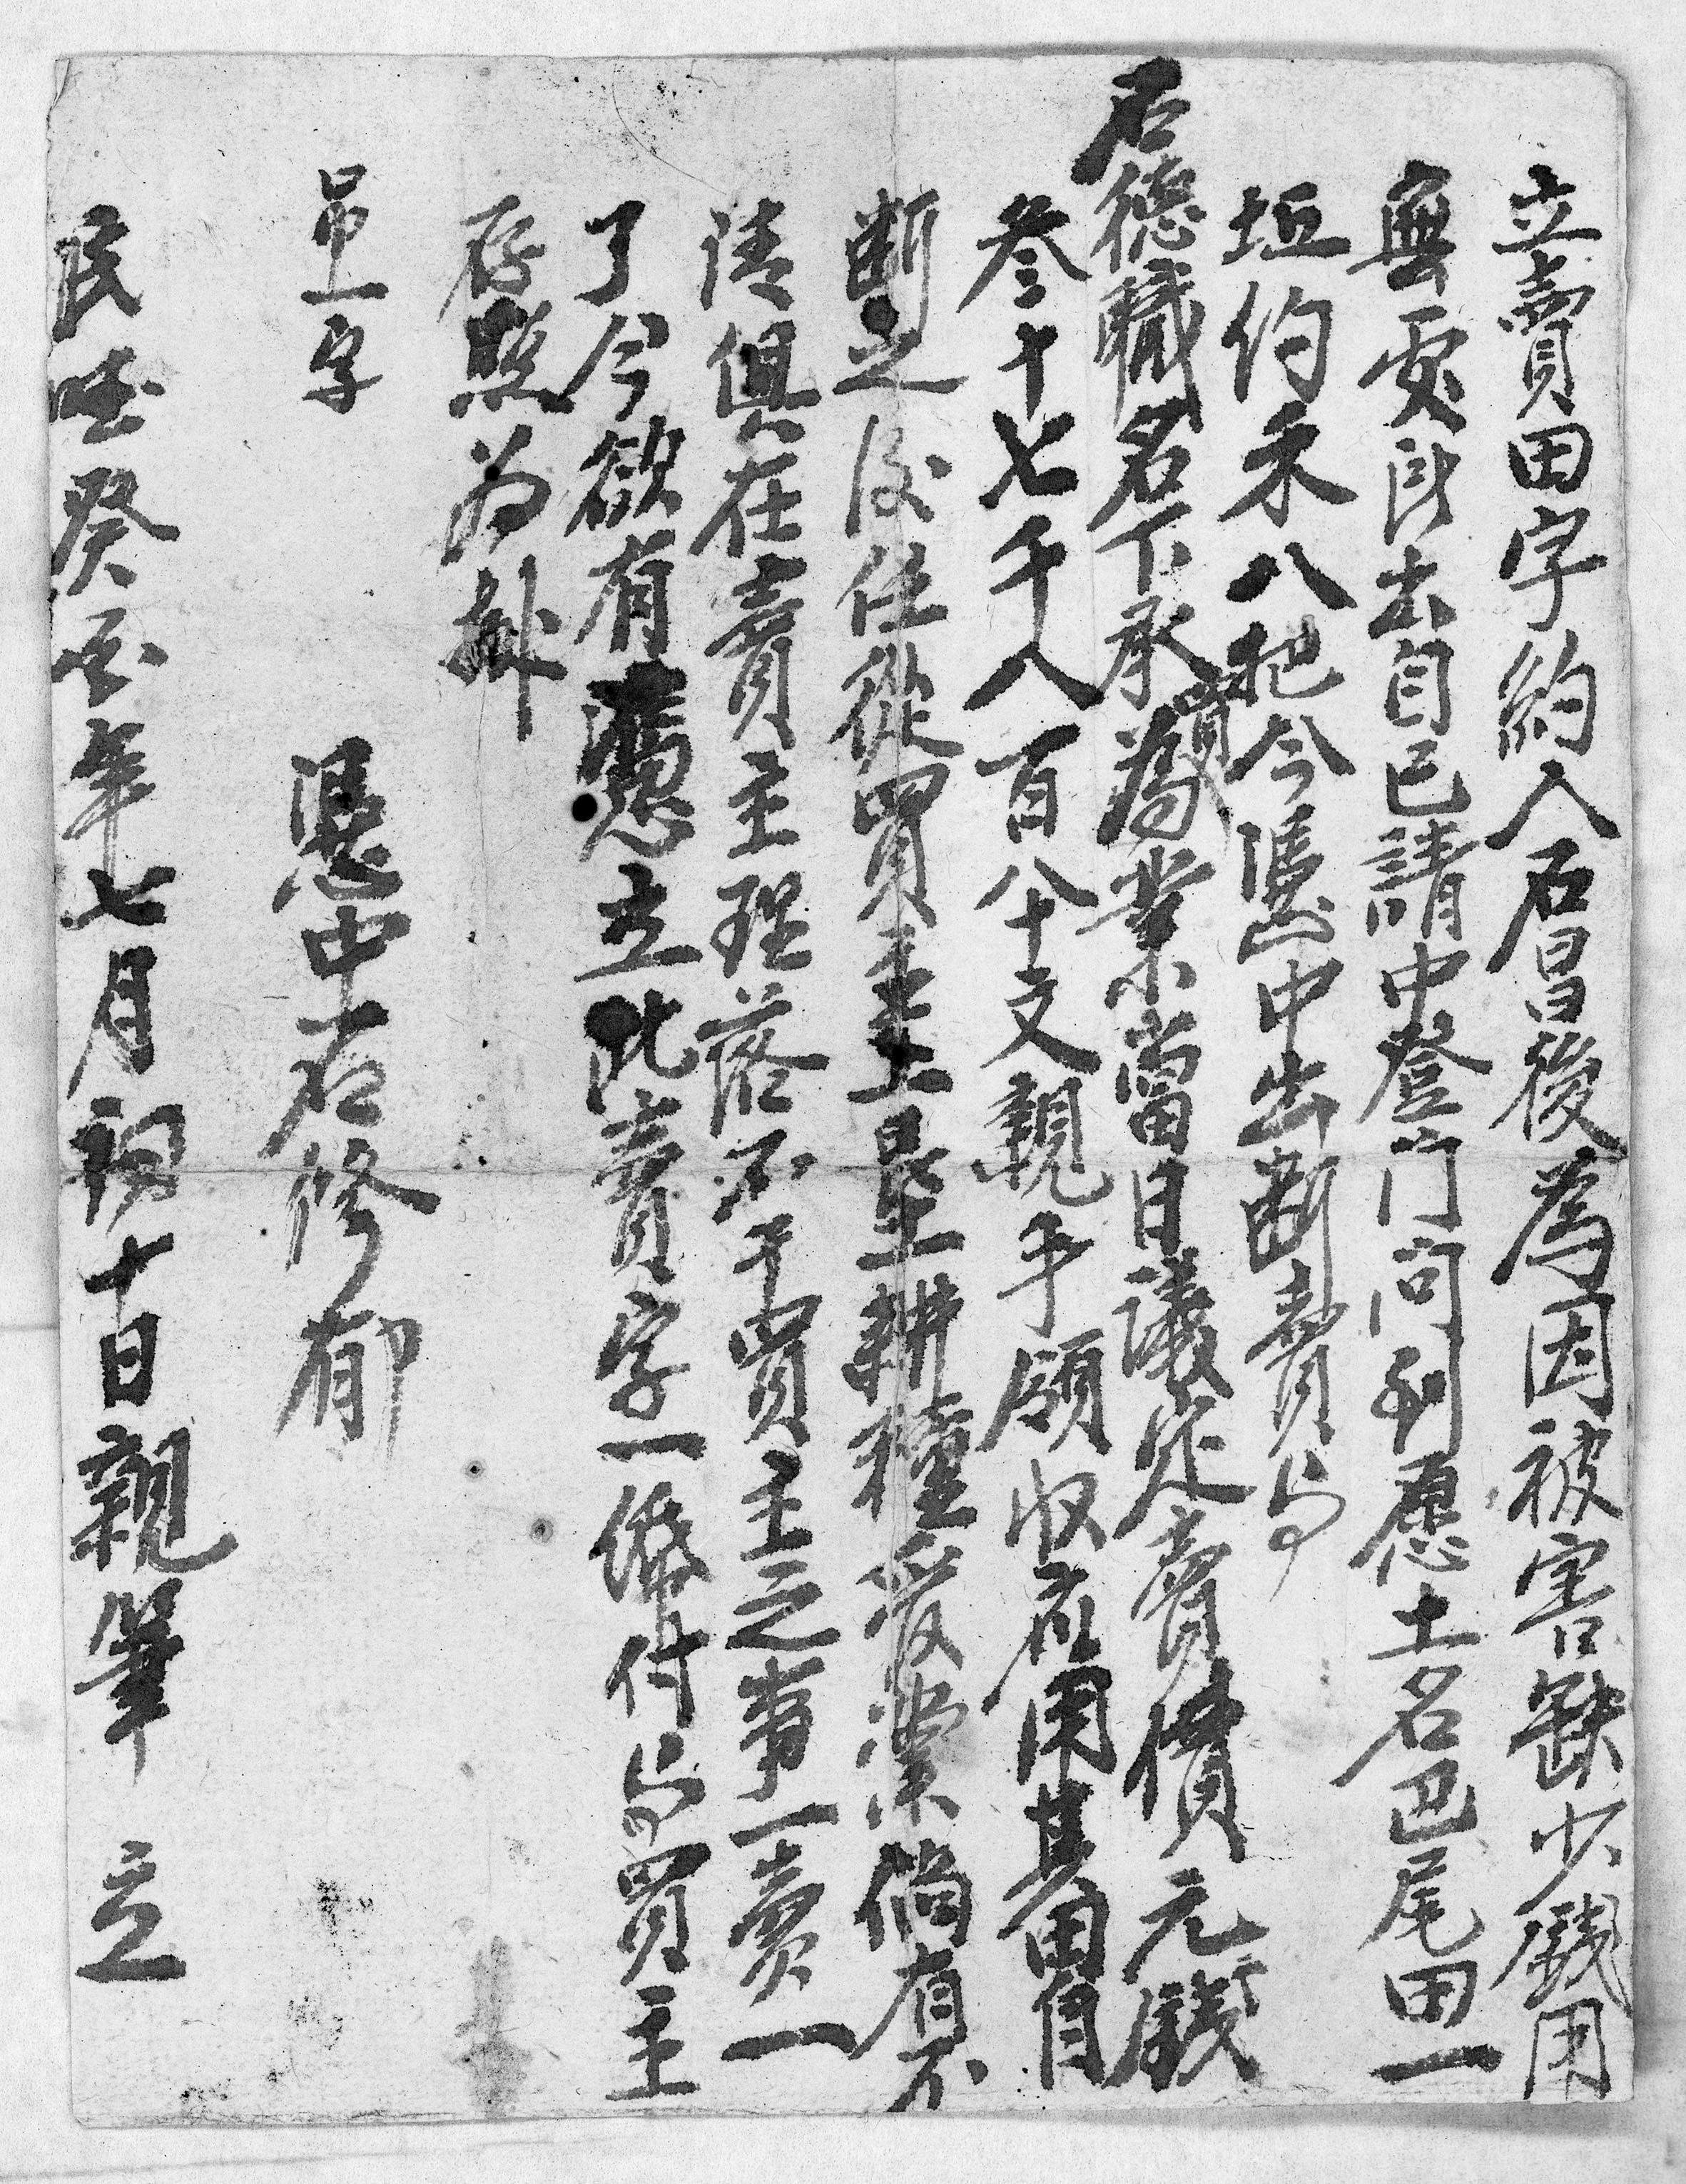 立賣田字約人石昌後為因被害缺少錢用
無處出自己請中登门问到愿土名巴尾田一
坵约禾八把今憑中出断賣与
石德職名下承買為業當日議定賣價元錢
叁十七千八百八十文親手領收应用其田自
断之後任從買主耕種受業倘有不
清俱在賣主理落不干買主之事一賣一
了今欲有憑立此賣字一𦂇付与買主
存照為㨿
吊一字
憑中石修郁
民國癸亥年七月初十日親筆 立